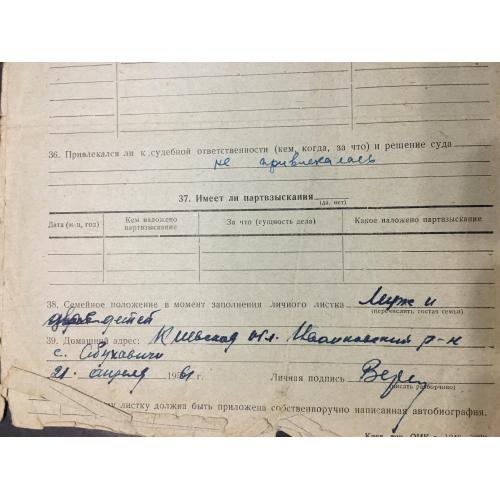 36. Привлекался ли к судебной ответственности (кем, когда, за что) и решение суда
не привлекалась
37. Имеет ли партвзыскания
(да, нет)
Дата (м-ц, год) Кем наложено партвзыскание За что (сущность дела) Какое наложено партвзыскание
38. Семейное положение в момент заполнения личного листка Муж и
(перечислить состав семьи)
детей
39. Домашний адрес: Киевская обл. Иванковский р-н
с. Обуховичи
21. апреля 1961 г. Личная подпись
(писать разборчиво)
листку должна быть приложена собственноручно написанная автобиография.